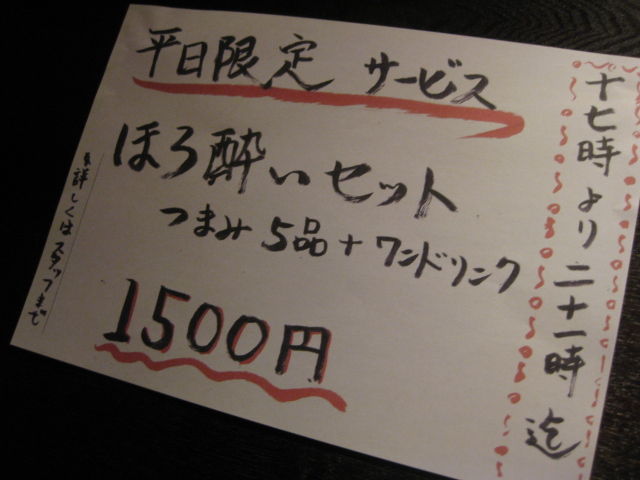 平日限定 サービス
ほろ酔いセット
つまみ 5品+ワンドリンク
1500円
十七時より二十一時迄
※詳しくはスタッフまで